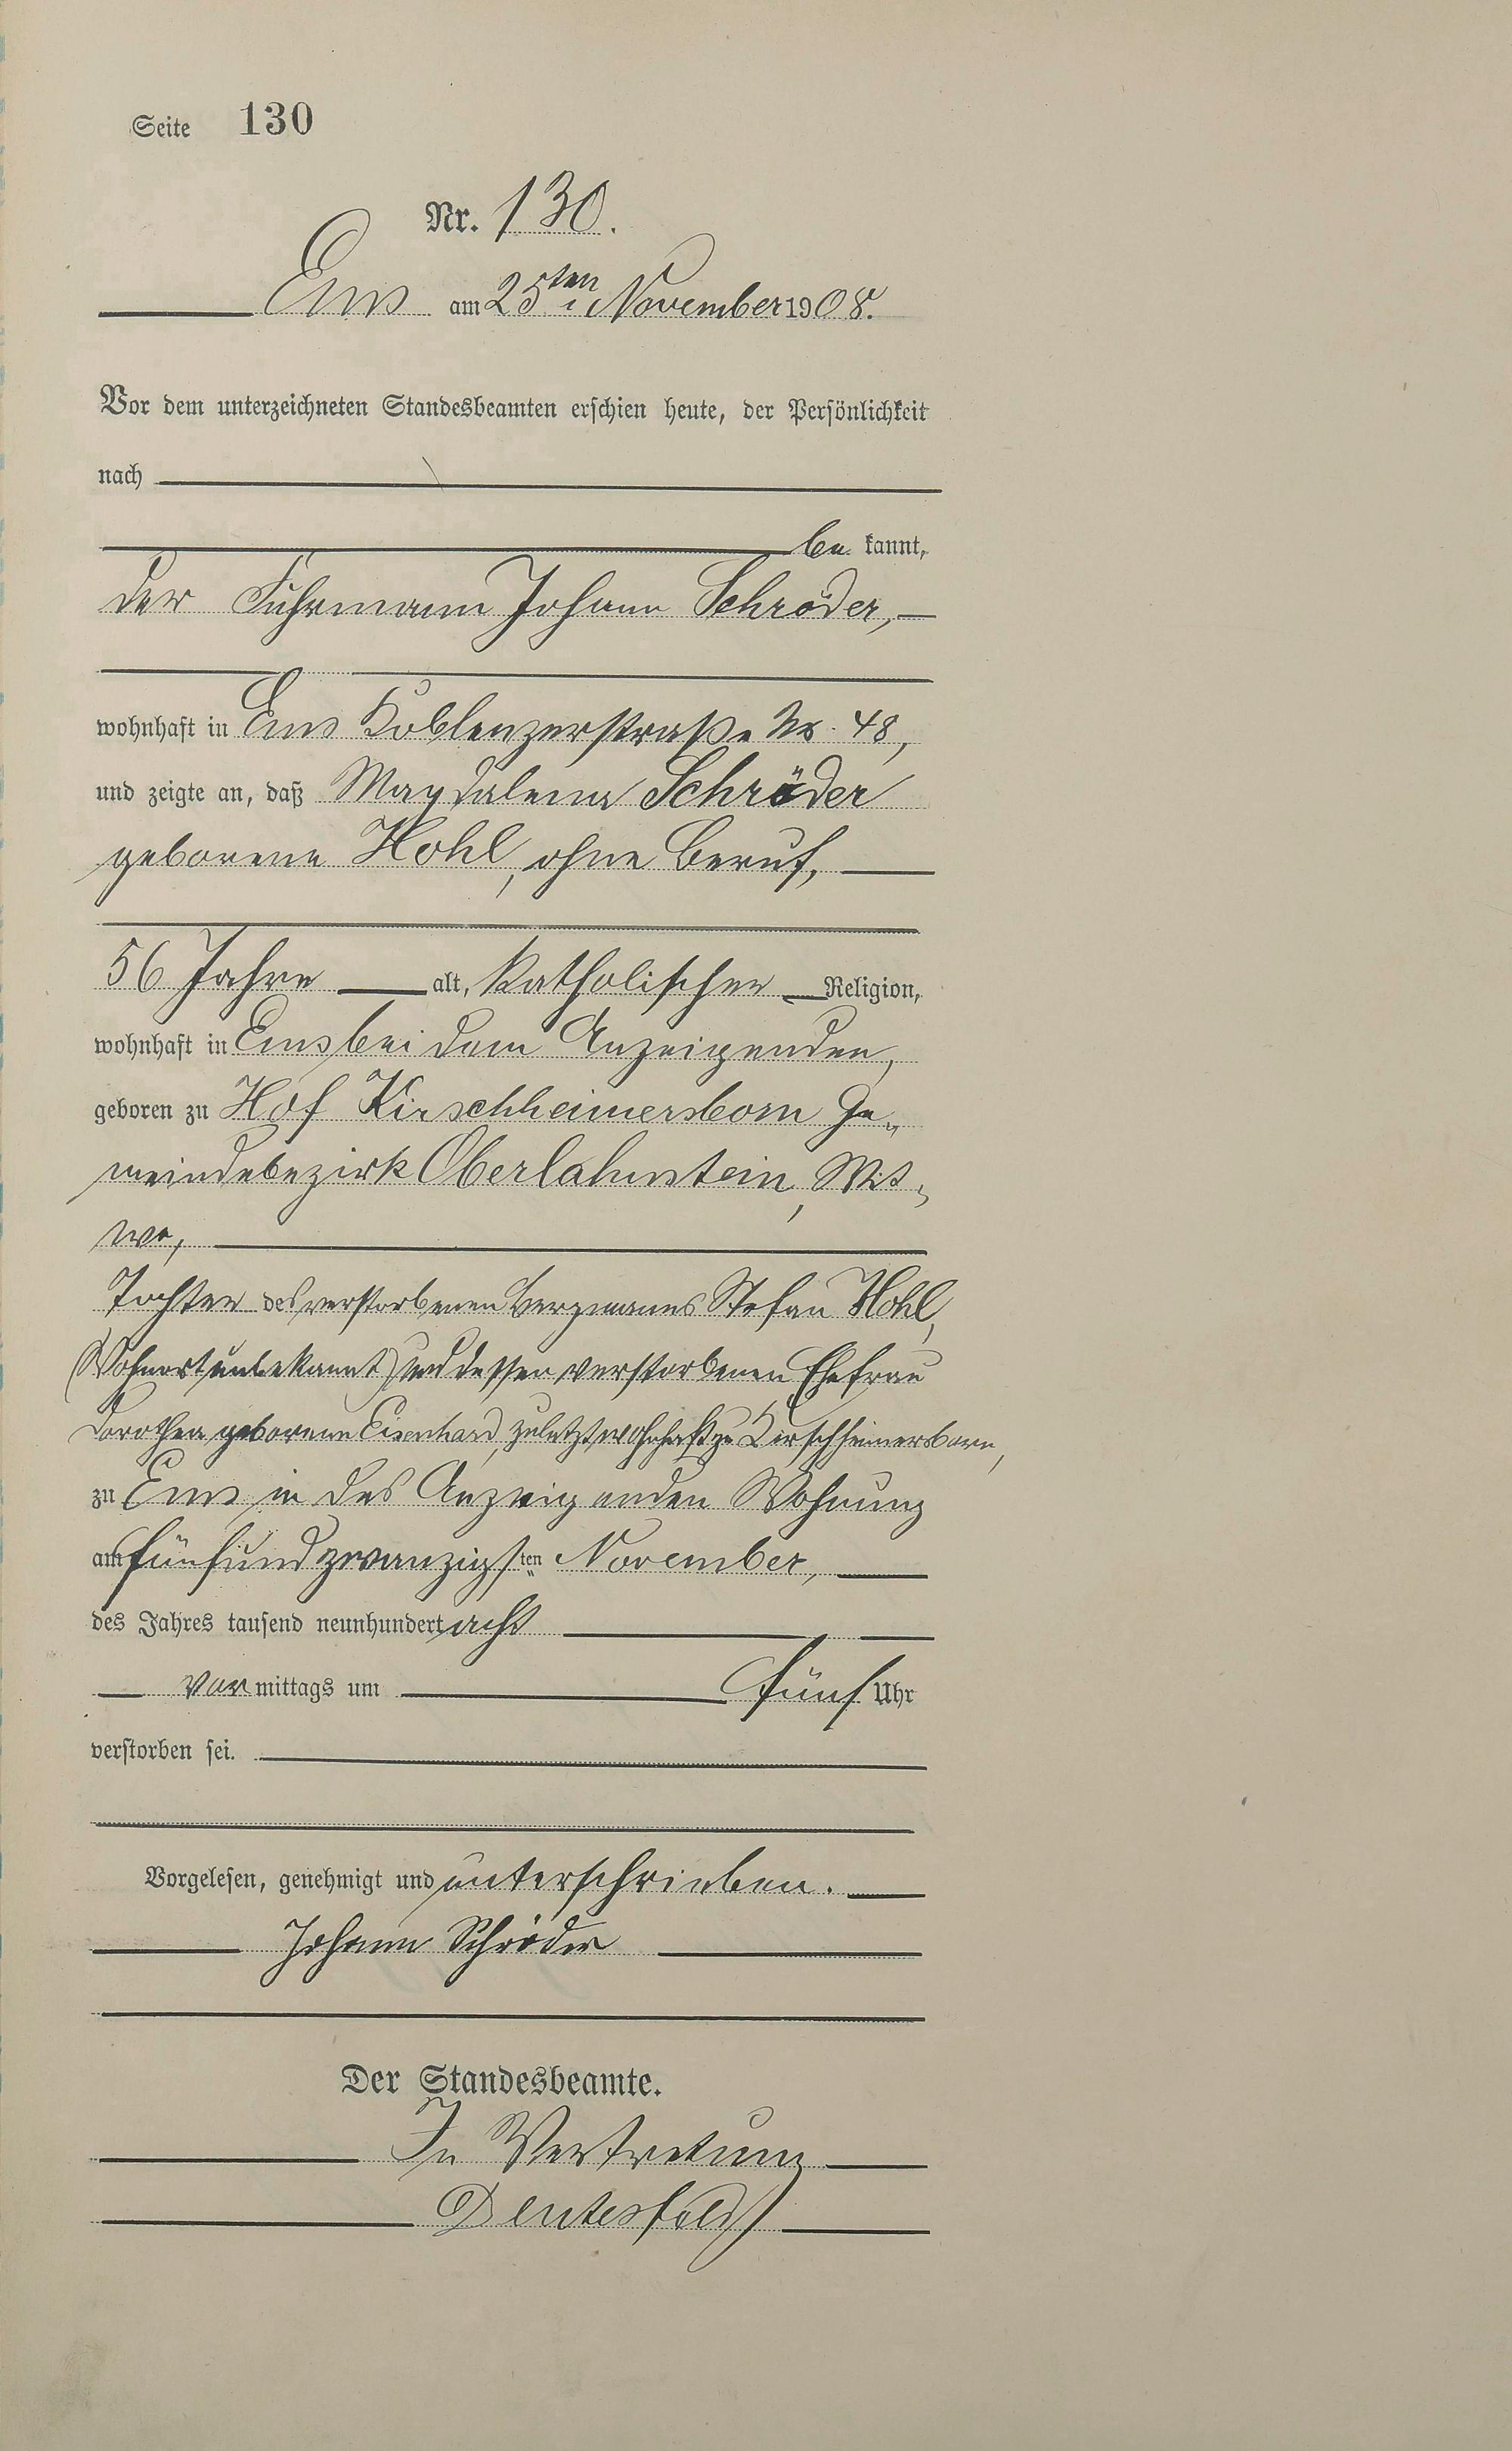 Seite 130
Nr. 130.
Ems am 25ten November 1908.
Vor dem unterzeichneten Standesbeamten erschien heute, der Persönlichkeit
nach
be kannt,
der Fuhrmann Johann Schröder,
wohnhaft in Ems Koblenzerstraße Nr. 48,
und zeigte an, daß Magdalena Schröder
geborene Hohl, ohne Beruf,
56 Jahre alt, katholischer Religion,
wohnhaft in Ems bei dem Anzeigenden,
geboren zu Hof Kirschheimersborn Ge„
meindebezirk Oberlahnstein, Wit„
we,
Tochter des verstorbenen Bergmanns Stefan Hohl,
(Wohnort unbekannt) und dessen verstorbenen Ehefrau
Dorothea geborene Eisenhard, zuletzt wohnhaft zu Kirschheimersborn,
zu Ems in des Anzeigenden Wohnung
am fünfundzwanzigsten November,
des Jahres tausend neunhundert acht
vor mittags um fünf Uhr
verstorben sei.
Vorgelesen, genehmigt und unterschrieben.
Johann Schröder
Der Standesbeamte.
In Vertretung